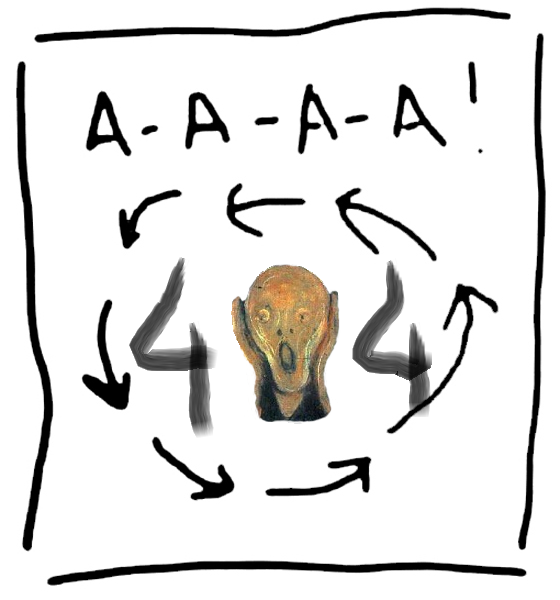 A-A-A-A!
4 4